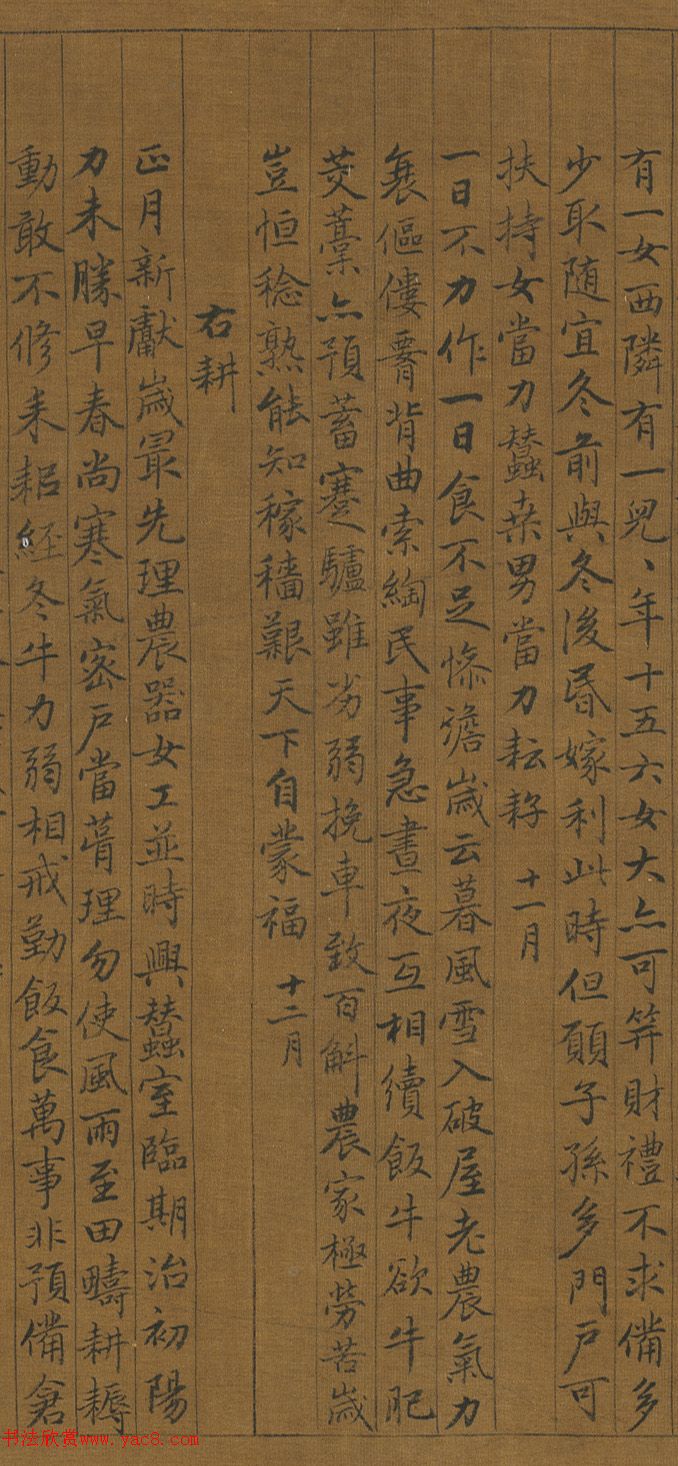 有一女西隣有一兒、年十五六女大亦可笄財禮不求備多
少取随宜冬前與冬後昏嫁利此時但願子孫多門戶可
扶持女當力蠶桒男當力耘耔 十一月
一日不力作一日食不足慘澹歲云暮風雪入破屋老農氣力
衰傴僂膂背曲索綯民事急晝夜互相續飯牛欲牛肥
茭藁亦預蓄蹇驢雖劣弱挽車致百斛農家極勞苦歲
豈恒稔熟能知稼穡艱天下自蒙福 十二月
右耕
正月新獻歲最先理農器女工並時興蠶室臨期治初陽
力未勝早春尚寒氣密戶當葺理勿使風雨至田疇耕耨
動敢不修耒耜經冬牛力弱相戒勤飯食萬事非預備倉
书法欣赏www.yac8.com